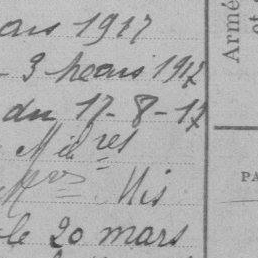 1917
3 mars 1917
du 17-8-17
Mis
le 20 mars
Armé
et
PA